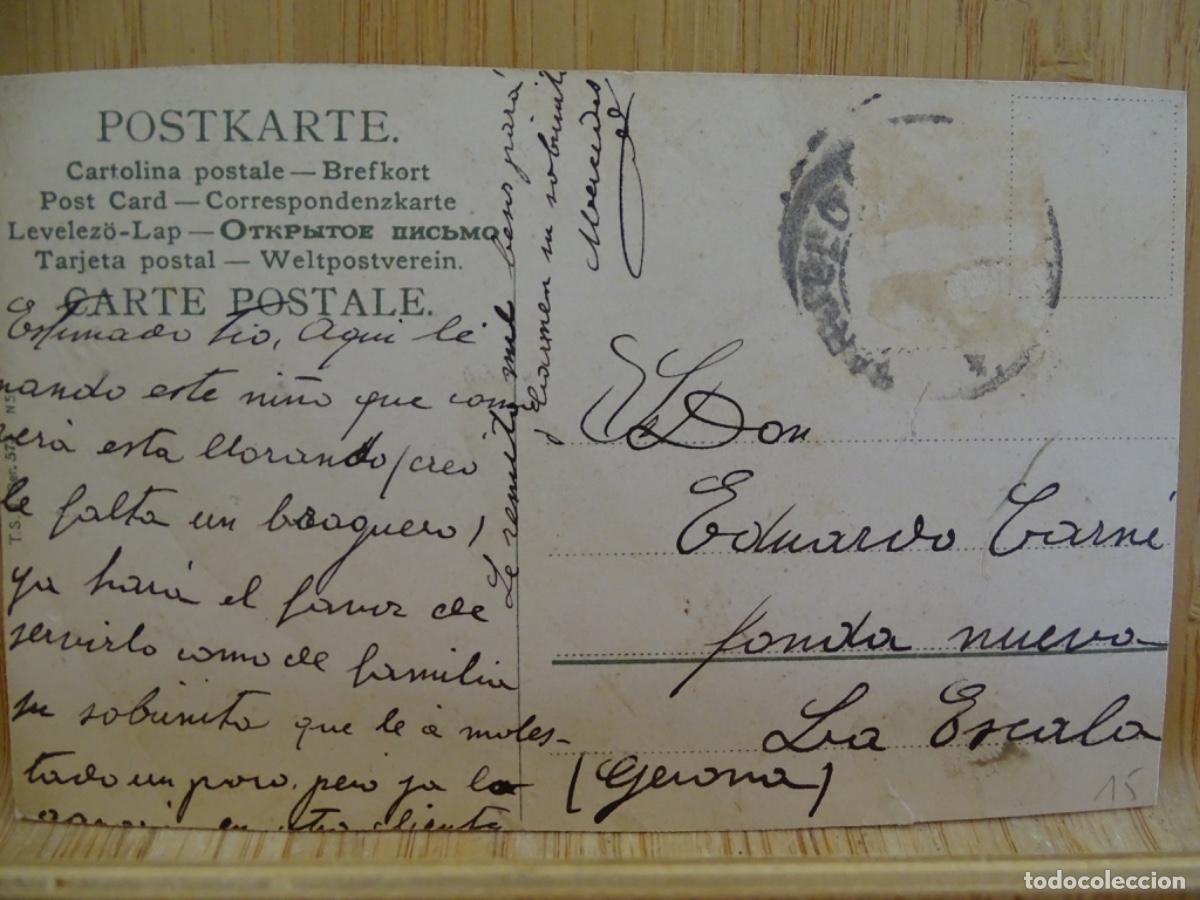 POSTKARTE.
Cartolina postale — Brefkort
Post Card — Correspondenzkarte
Levelezö-Lap — Открытое письмо
Tarjeta postal — Weltpostverein.
CARTE POSTALE.
Estimado tio, Aqui le
mando este niño que como
verá esta llorando (creo
le falta un braguero)
ya hará el favor de
servirlo como de familia
su sobrinita que le a moles-
tado un poco, pero ya lo
en otro cliente
Le remito mil besos para
Carmen su sobrinita
Mercedes
Sr Don
Eduardo Carné
fonda nueva
La Escala
(Gerona)
15
todocoleccion